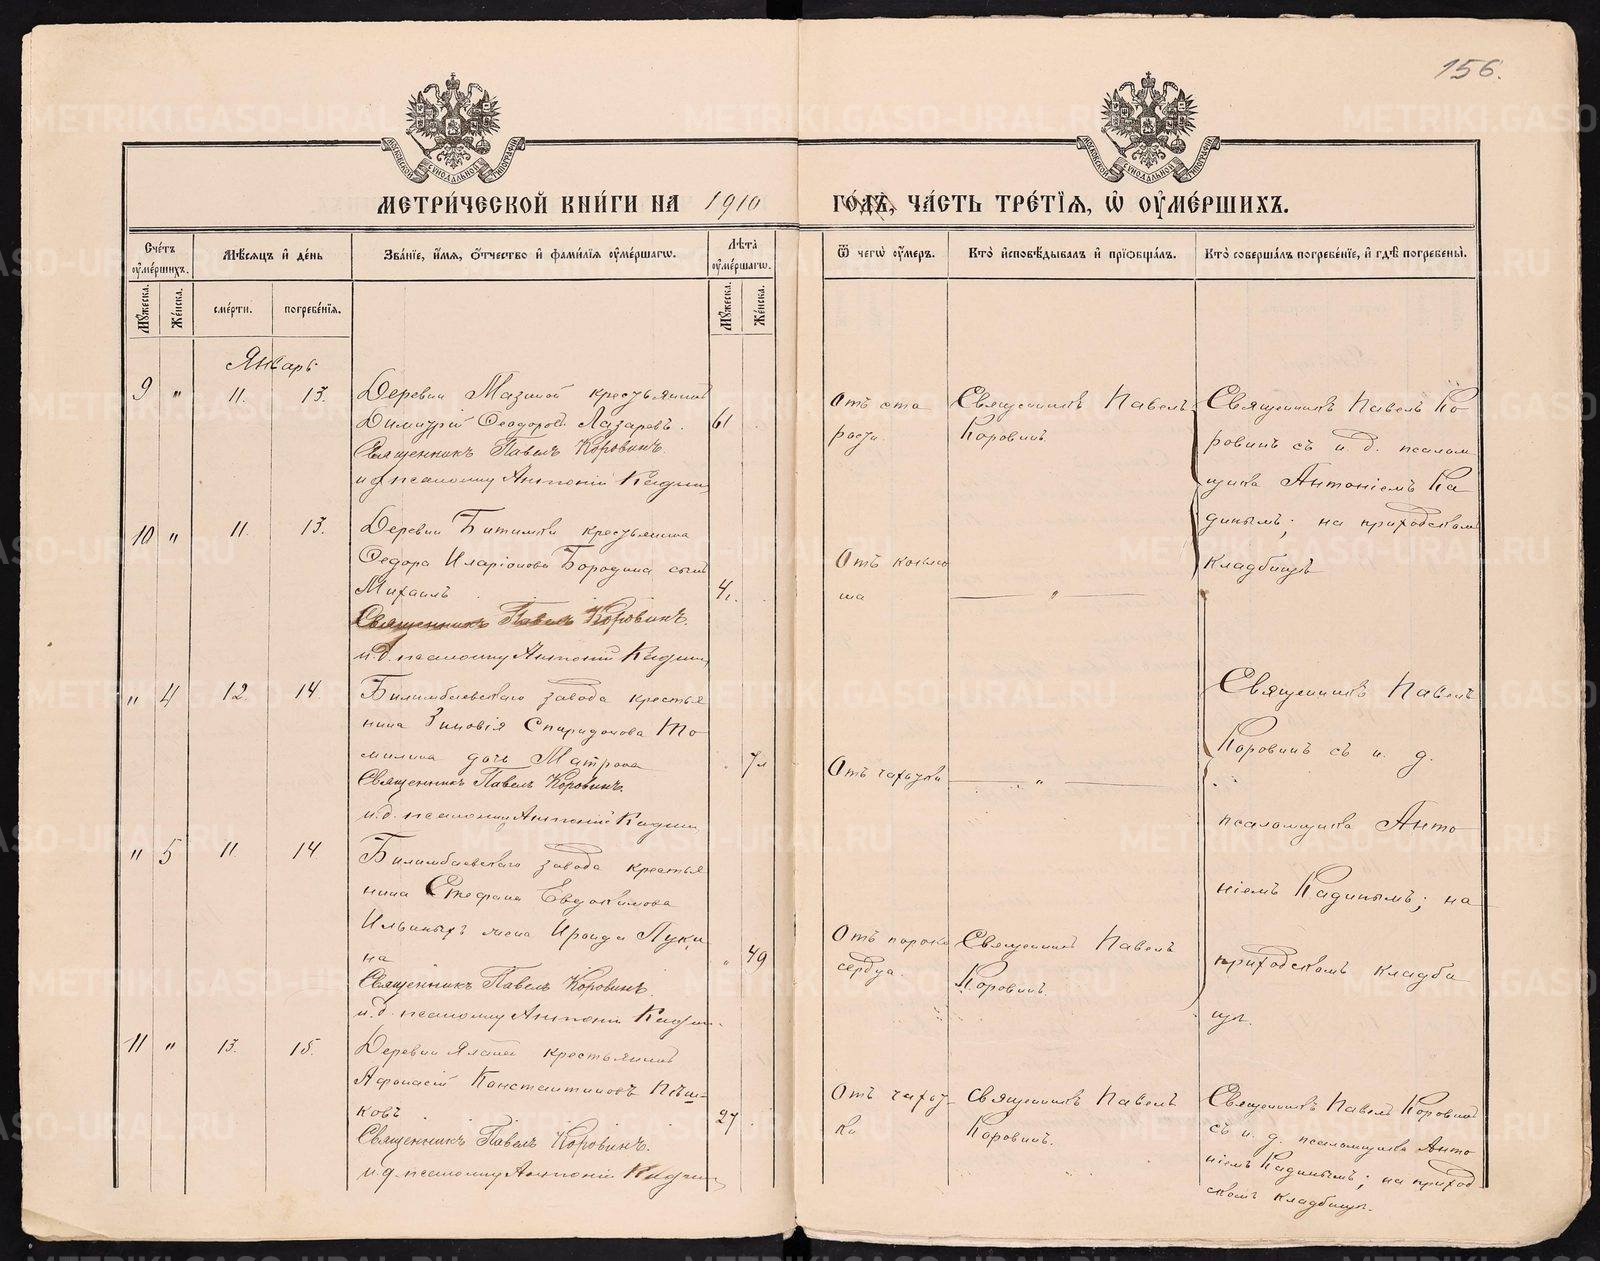 156.
МОСКОВСКОЙ СѴНОДАЛЬНОЙ ТИПОГРАФІИ
МОСКОВСКОЙ СѴНОДАЛЬНОЙ ТИПОГРАФІИ
МЕТРИ́ЧЕСКОЙ КНИ́ГИ НА 1910 ГО́ДЪ, ЧА́СТЬ ТРЕ́ТЇѦ, Ѡ҆ ОУ҆МЕ́РШИХЪ.
Сче́тъ оу҆ме́ршихъ.
Мѣ́сяцъ и҆ де́нь
Зва́нїе, и҆́мя, ѻ҆́тчество и҆ фами́лїя оу҆ме́ршагѡ.
Лѣ́та оу҆ме́ршагѡ.
Ѿ чегѡ̀ оу҆́меръ.
Кто̀ и҆сповѣ́дывалъ и҆ прїѡбща́лъ.
Кто̀ соверша́лъ погребе́нїе, и҆ гдѣ̀ погребены̀.
Мꙋ́жеска.
Же́нска.
сме́рти.
погребе́нїя.
Мꙋ́жеска.
Же́нска.
Январь
9 " 11. 13.
Деревни Мазиной крестьянинъ
Димитрій Ѳеодоровъ Лазаревъ. 61
Священникъ Павелъ Коровинъ.
и д псаломщ Антоній Кадин
Отъ ста
рости.
Священникъ Павелъ
Коровинъ.
Священникъ Павелъ Ко
ровинъ съ и. д. псалом
щика Антоніемъ Ка
динымъ; на приходскомъ
кладбищѣ
10 " 11. 13.
Деревни Битимки крестьянина
Федора Иларіонова Бородина сынъ
Михаилъ 4.
Священникъ Павелъ Коровинъ.
и. д. псаломщ Антоній Кадин
Отъ коклю
ша
"
" 4 12. 14.
Билимбаевскаго завода крестья
нина Зиновія Спиридонова То
милина дочь Матрона 7
Священникъ Павелъ Коровинъ.
и. д. псаломщ Антоній Кадин
Отъ чахотки
"
Священникъ Павелъ
Коровинъ съ и. д.
псаломщика Анто
ніемъ Кадинымъ; на
приходскомъ кладби
щѣ.
" 5 11 14
Билимбаевскаго завода крестья
нина Стефана Евдокимова
Ильиныхъ жена Ираида Луки
на " 49
Священникъ Павелъ Коровинъ.
и. д. псаломщ Антоній Кадин
Отъ порока
сердца.
Священникъ Павелъ
Коровинъ.
11 " 13. 15.
Деревни крестьянинъ
Афонасій Константиновъ Пѣш-
ковъ 27
Священникъ Павелъ Коровинъ.
и д. псаломщ Антоній Кадин
Отъ чахот-
ки
Священникъ Павелъ
Коровинъ.
Священникъ Павелъ Коровинъ
съ и. д. псаломщика Анто
ніемъ Кадинымъ; на приход
скомъ кладбищѣ.
METRIKI.GASO-URAL.RU